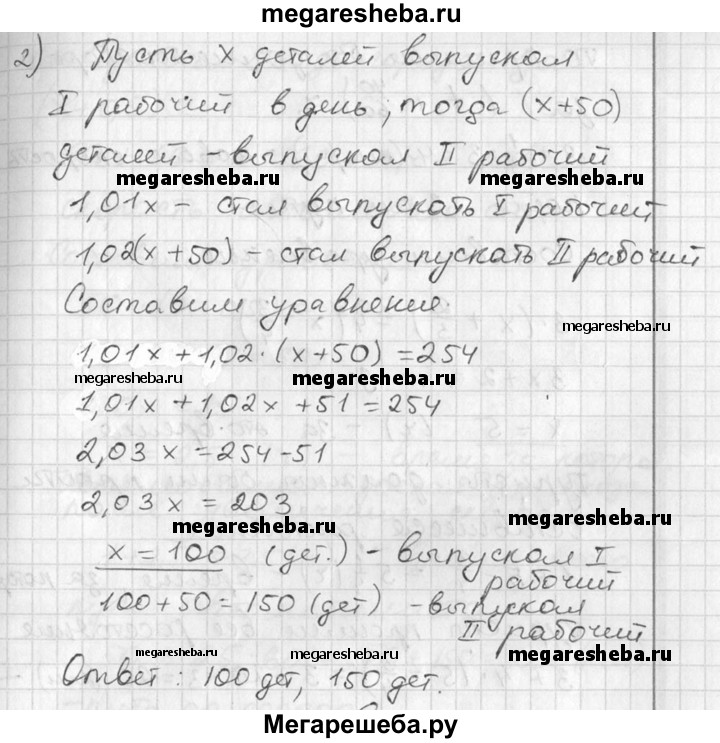 megaresheba.ru
2) Пусть x деталей выпускал
I рабочий в день, тогда (x+50)
деталей - выпускал II рабочий
megaresheba.ru megaresheba.ru
1,01x - стал выпускать I рабочий
1,02(x+50) - стал выпускать II рабочий
Составим уравнение.
megaresheba.ru
1,01x + 1,02·(x+50) = 254
megaresheba.ru megaresheba.ru
1,01x + 1,02x + 51 = 254
2,03x = 254-51
2,03x = 203
megaresheba.ru megaresheba.ru
x = 100 (дет.) - выпускал I
рабочий
100+50 = 150 (дет) - выпускал
II рабочий
megaresheba.ru megaresheba.ru megaresheba.ru
Ответ: 100 дет, 150 дет.
Мегарешеба.ру